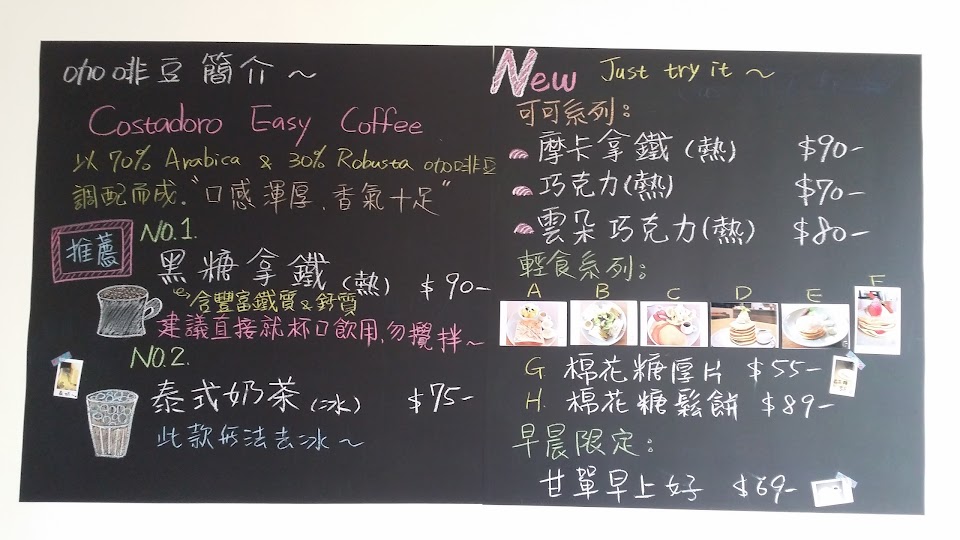 咖啡豆簡介~
Costadoro Easy Coffee
以70% Arabica & 30% Robusta 咖啡豆
調配而成."口感渾厚、香氣十足"
推薦
NO.1.
黑糖拿鐵(熱) $90-
含豐富鐵質&鈣質
建議直接就杯口飲用,勿攪拌~
NO.2.
泰式奶茶(冰) $75-
此款無法去冰~
New Just try it ~
可可系列:
摩卡拿鐵(熱) $90-
巧克力(熱) $70-
雲朵巧克力(熱) $80-
輕食系列:
A B C D E F
G 棉花糖厚片 $55-
H. 棉花糖鬆餅 $89-
早晨限定:
甘單早上好 $69-